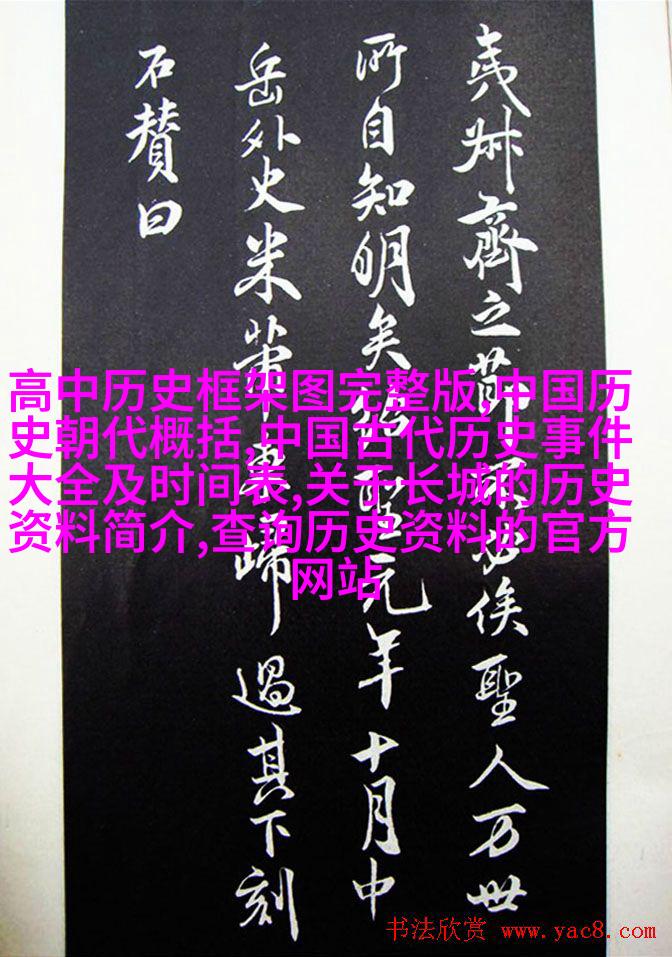 夷叔齊之節必俟聖人万世
所自知明矣紹聖元年十月中
岳外史米芾東歸過其下刻
石賛曰
高中历史框架图完整版,中国历
史朝代概括,中国古代历史事件
大全及时间表,关于长城的历史
资料简介,查询历史资料的官方
网站
书法欣赏 www.yac8.com